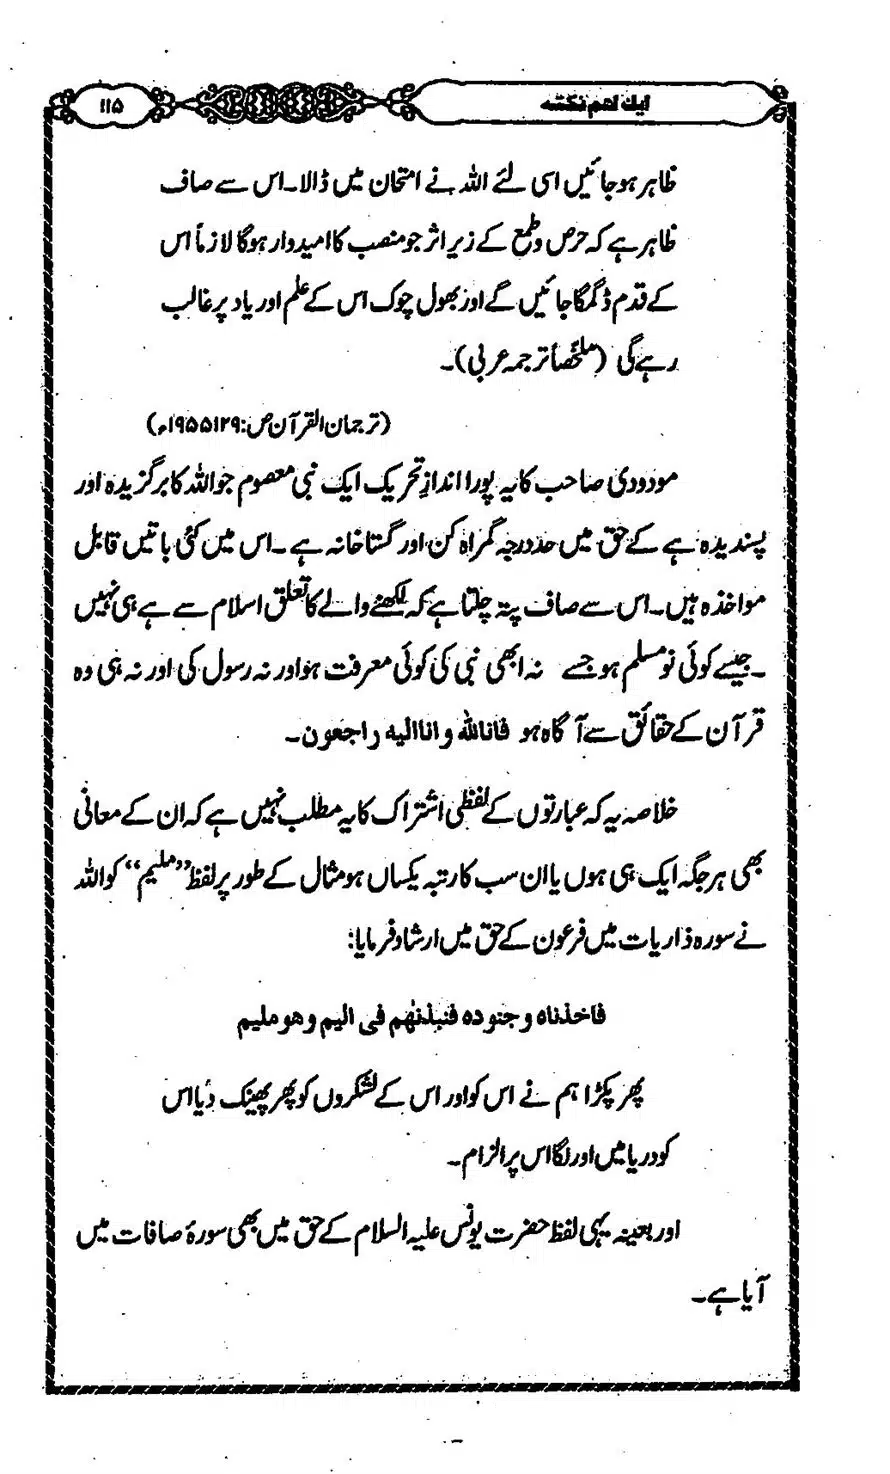 ایک اہم نکتہ
۱۱۵
ظاہر ہوجائیں اسی لئے اللہ نے امتحان میں ڈالا۔اس سے صاف
ظاہر ہے کہ حرص وطمع کے زیر اثر جو منصب کا امیدوار ہوگا لازماً اس
کے قدم ڈگمگا جائیں گے اور بھول چوک اس کے علم اور یاد پر غالب
رہے گی (ملخصاً ترجمہ عربی)۔
(ترجمان القرآن ص:۱۲۹ ۱۹۵۵ء)
مودودی صاحب کا یہ پورا اندازِ تحریک ایک نبی معصوم جو اللہ کا برگزیدہ اور
پسندیدہ ہے کے حق میں حد درجہ گمراہ کن اور گستاخانہ ہے۔اس میں کئی باتیں قابل
مواخذہ ہیں۔اس سے صاف پتہ چلتا ہے کہ لکھنے والے کا تعلق اسلام سے ہے ہی نہیں
۔جیسے کوئی نو مسلم ہو جسے نہ ابھی نبی کی کوئی معرفت ہو اور نہ رسول کی اور نہ ہی وہ
قرآن کے حقائق سے آگاہ ہو فانا للہ وانا الیہ راجعون۔
خلاصہ یہ کہ عبارتوں کے لفظی اشتراک کا یہ مطلب نہیں ہے کہ ان کے معانی
بھی ہر جگہ ایک ہی ہوں یا ان سب کا رتبہ یکساں ہو مثال کے طور پر لفظ ’’ملیم‘‘ کو اللہ
نے سورہ ذاریات میں فرعون کے حق میں ارشاد فرمایا:
فاخذناہ وجنودہ فنبذنٰھم فی الیم وھو ملیم
پھر پکڑا ہم نے اس کو اور اس کے لشکروں کو پھر پھینک دیا اس
کو دریا میں اور لگا اس پر الزام۔
اور بعینہ یہی لفظ حضرت یونس علیہ السلام کے حق میں بھی سورۂ صافات میں
آیا ہے۔